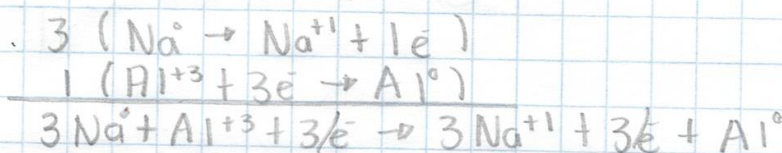 . 3 (Na° → Na⁺¹ + 1e⁻)
1 (Al⁺³ + 3e⁻ → Al°)
3 Na° + Al⁺³ + 3e⁻ → 3 Na⁺¹ + 3e⁻ + Al°